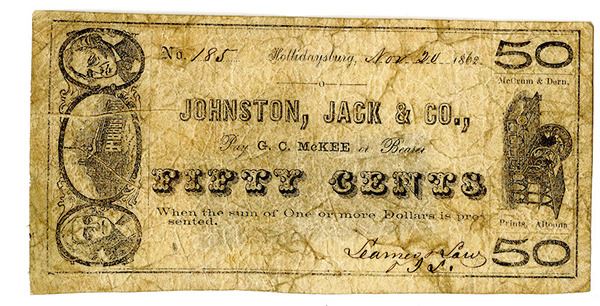 50
No. 185 Hollidaysburg, Nov. 20 1862
McCrum & Dern,
JOHNSTON, JACK & CO.,
Pay G. C. McKEE or Bearer
FIFTY CENTS
When the sum of One or more Dollars is pre-
sented.
Prints, Altoona
50